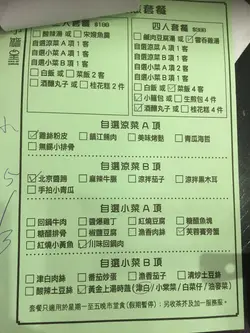 套餐
二人套餐 $180
四人套餐
酸辣湯 或 宋嫂魚羹
鹹肉豆腐湯 或 雲吞雞湯
自選涼菜A項 1客
自選小菜A項 1客
自選小菜B項 1客
白飯 或 菜飯 2客
酒釀丸子 或 桂花糕 2件
自選涼菜A項 1客
自選涼菜B項 1客
自選小菜A項 2客
自選小菜B項 1客
白飯 或 菜飯 4客
小籠包 或 生煎包 4件
酒釀丸子 或 桂花糕 4件
自選涼菜A項
雞絲粉皮 鎮江餚肉 美味烤麩 青瓜海哲
無錫小排骨
自選涼菜B項
北京醬蹄 麻辣牛腱 涼拌茄子 涼拌黑木耳
手拍小青瓜
自選小菜A項
回鍋牛肉 鹽爆雞丁 紅燒豆腐 糖醋魚塊
糖醋排骨 椒鹽豆腐 漁香肉絲 芙蓉賽旁蟹
紅燒小黃魚 川味回鍋肉
自選小菜B項
津白肉絲 番茄炒蛋 漁香茄子 清炒土豆絲
酸辣土豆絲 黃金上湯時蔬(津白/小棠菜/白菜仔/油麥菜)
套餐只適用於星期一至五晚市堂食(假期暫停);另收茶芥及加一服務。